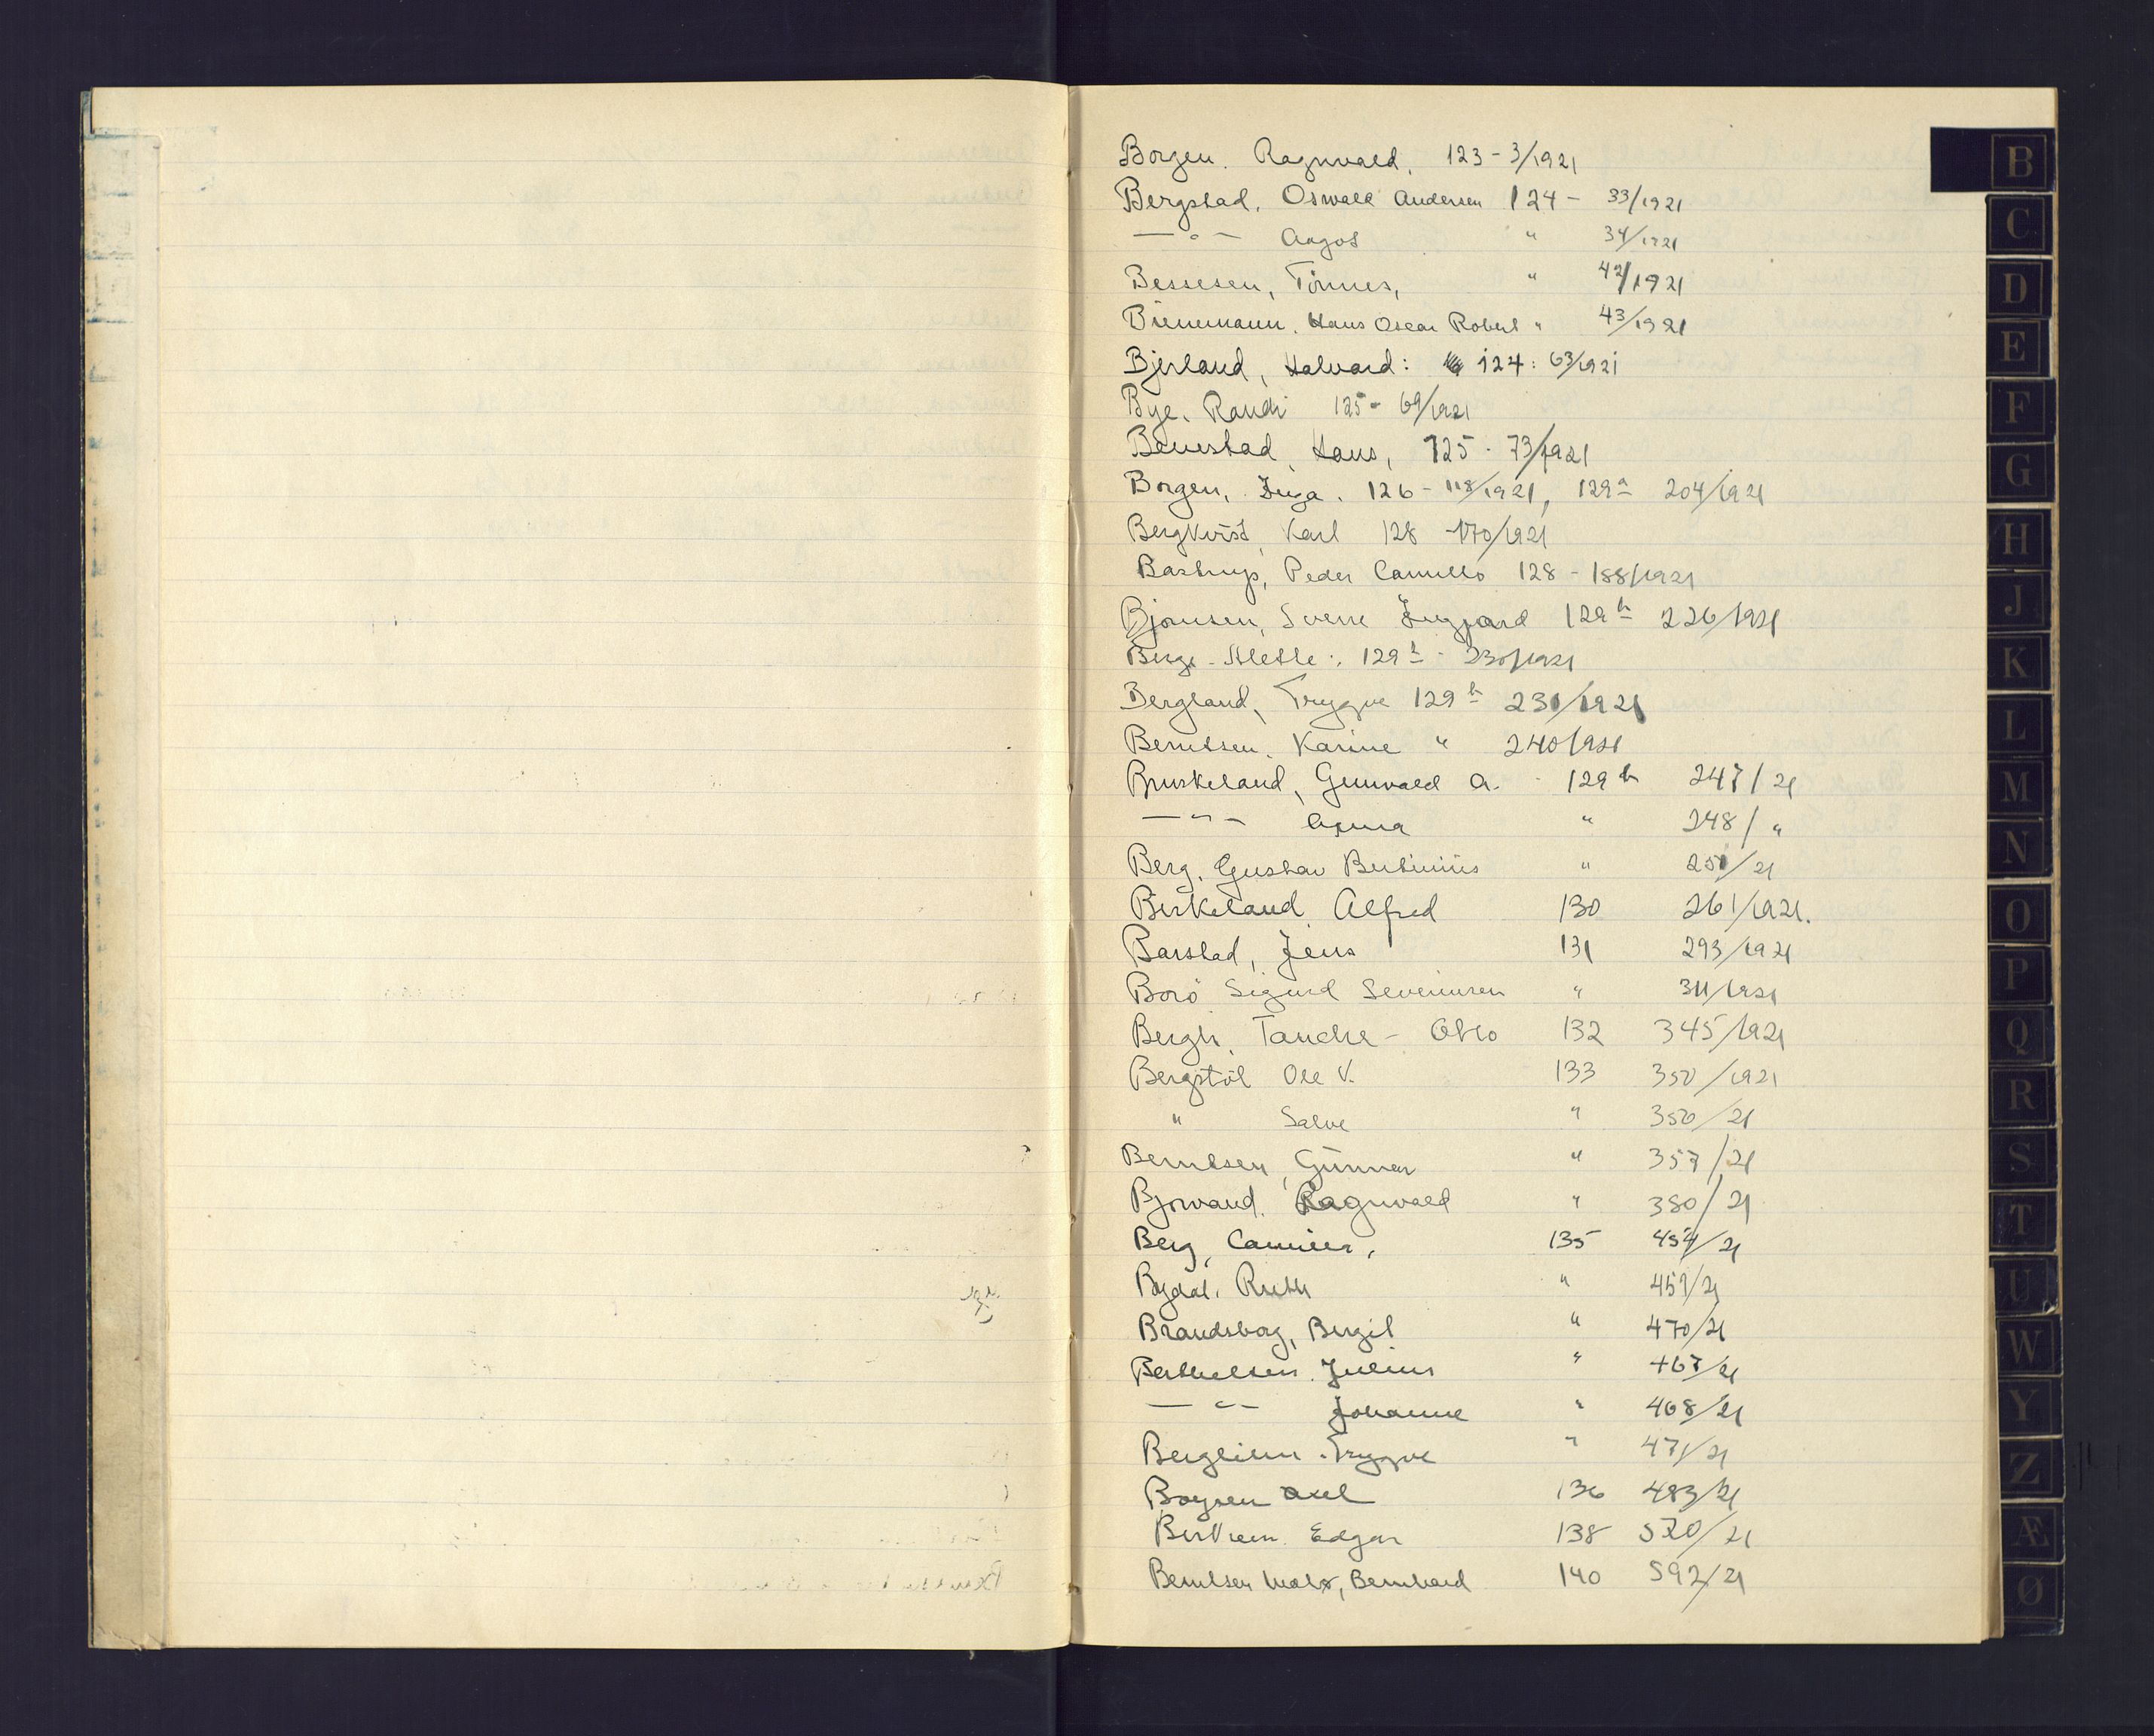 Borgen. Ragnvald, 123 - 3/1921
Bergstad, Oswald Andersen 124 - 33/1921
— " — Aagot " 34/1921
Bessesen, Tönnes, " 42/1921
Bienemann. Hans Oscar Robert " 43/1921
Bjerland, Halvard: 124: 63/1921
Bye, Randi 125 - 69/1921
Benestad, Hans, 125 - 73/1921
Borgen, Inga. 126 - 118/1921, 129a 204/1921
Bergkvist, Karl 128 - 170/1921
Bastrup, Peder Camillo 128 - 188/1921
Bjørnsen, Sverre Ingvard 129b 226/1921
Berge - Sletle: 129b - 230/1921
Bergland, Trygve 129b 231/1921
Berntsen. Karine " 240/1921
Bruskeland, Gunvald A. - 129b 247/21
— " — Agna " 248/"
Berg, Gustav Bertinius " 251/21
Birkeland Alfred 130 261/1921.
Barstad, Jens 131 293/1921
Borö Sigurd Severinsen " 311/1921
Bergh, Tanche - Otto 132 345/1921
Bergstöl Ole V. 133 350/1921
" Salve " 350/21
Berntsen, Gunnar " 357/21
Bjorvand. Ragnvald " 380/21
Berg, 135 454/21
Bydal. Ruth " 459/21
Brandsborg, Bergit " 470/21
Berthelsen. Julius " 467/21
— " — Johanne " 468/21
Berglihn. Trygve " 471/21
Boysen Axel 136 483/21
Birkrem. Edgar 138 520/21
Berntsen Bernhard 140 592/21
B
C
D
E
F
G
H
J
K
L
M
N
O
P
Q
R
S
T
U
W
Y
Z
Æ
Ø